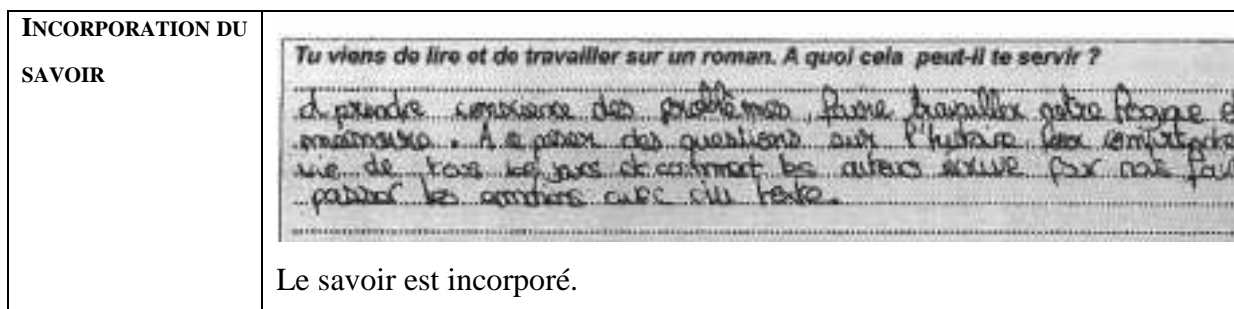 INCORPORATION DU
SAVOIR
Tu viens de lire et de travailler sur un roman. A quoi cela peut-il te servir ?
A prendre conscience des problèmes, faire travailler notre logique et
mémoire. A se poser des questions sur l'histoire, leur
vie de tous les jours et comment les auteurs écrive pour nous fair
passer les avec du texte.
Le savoir est incorporé.